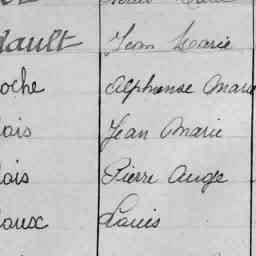 dault Jean Marie
oche Alphonse Marie
ois Jean Marie
lois Pierre Ange
oux Louis